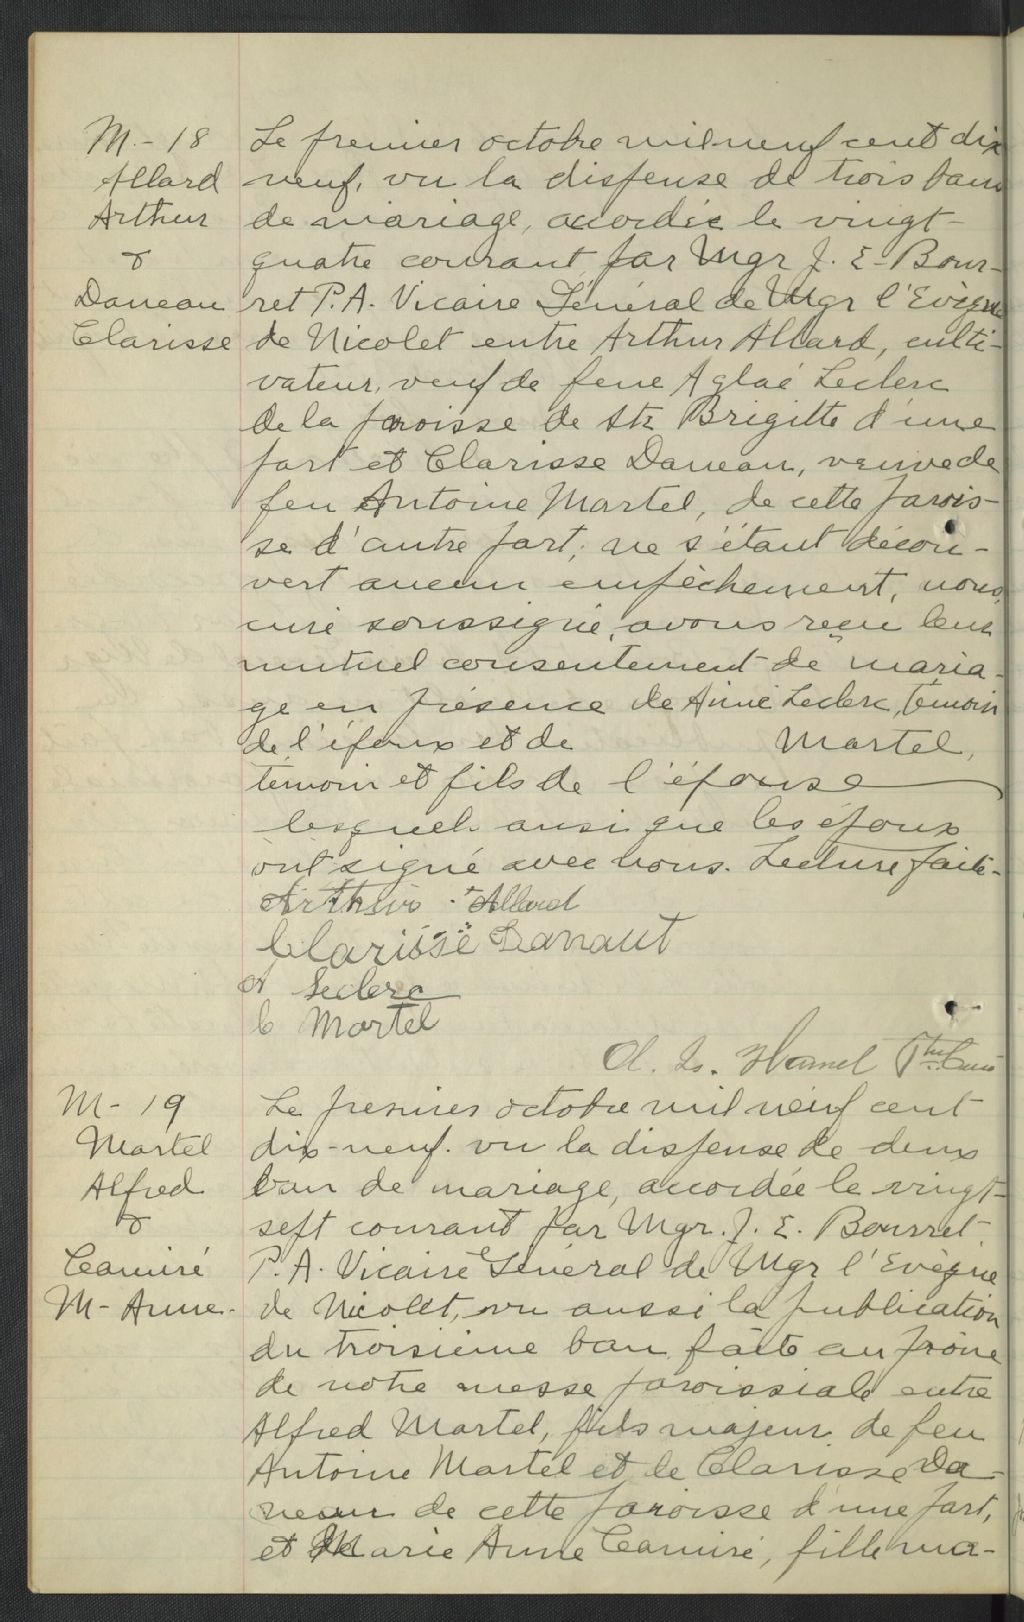 M - 18
Allard
Arthur
&
Daneau
Clarisse
Le premier octobre mil-neuf cent dix
neuf, vu la dispense de trois bans
de mariage, accordée le vingt-
quatre courant par Mgr J. E. Bour-
ret P.A. Vicaire Général de Mgr l'Evêque
de Nicolet entre Arthur Allard, culti-
vateur, veuf de feue Aglaé Leclerc
de la paroisse de Ste Brigitte d'une
part et Clarisse Daneau, veuve de
feu Antoine Martel, de cette parois-
se d'autre part; ne s'étant décou-
vert aucun empêchement, nous,
curé soussigné, avons reçu leur
mutuel consentement de maria-
ge en présence de Aimé Leclerc, témoin
de l'époux et de Martel,
témoin et fils de l'épouse
lesquels ainsi que les époux
ont signé avec nous. Lecture faite.
Arthur Allard
Clarisse Danaut
A Leclerc
C Martel
Hamel Ptre Curé
M - 19
Martel
Alfred
&
Camiré
M - Anne.
Le premier octobre mil neuf cent
dix-neuf. vu la dispense de deux
ban de mariage, accordée le vingt-
sept courant par Mgr. J. E. Bourret
P. A. Vicaire Général de Mgr l'Evêque
de Nicolet, vu aussi la publication
du troisième ban faite au prône
de notre messe paroissiale entre
Alfred Martel, fils majeur de feu
Antoine Martel et de Clarisse Da-
neau de cette paroisse d'une part,
et Marie Anne Camiré, fille ma-